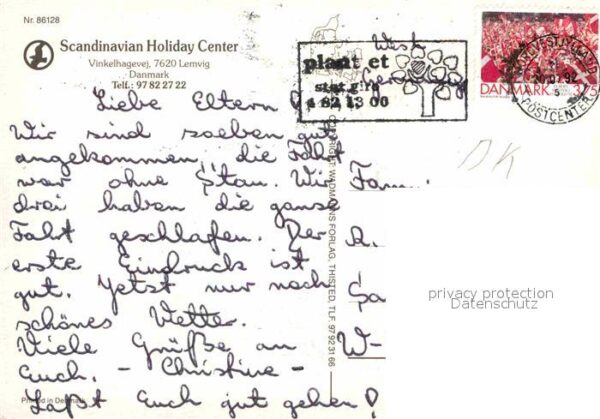 Nr. 86128
Scandinavian Holiday Center
Vinkelhagevej, 7620 Lemvig
Danmark
Telf.: 97 82 27 22
Liebe Eltern!
Wir sind soeben gut
angekommen, die Fahrt
war ohne Stau. Wir
drei haben die ganze
Fahrt geschlafen. Der
erste Eindruck ist
gut. Jetzt nur noch
schönes Wetter.
Viele Grüße an
Euch. - Christine -
Laßt Euch gut gehen!
Printed in Denmark
COPYRIGHT: WADMANNS FORLAG, THISTED, TLF. 97 92 31 66
West
Germany
plant et
støt giro
4 82 13 00
DANMARK 3.75
POSTCENTER
DK
Fam.
R.
Sa
W-
privacy protection
Datenschutz